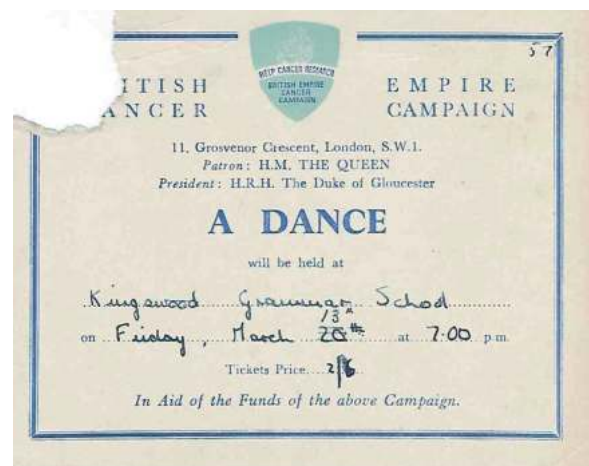 57
HELP CANCER RESEARCH
BRITISH EMPIRE
CANCER
CAMPAIGN
ITISH EMPIRE
ANCER CAMPAIGN
11, Grosvenor Crescent, London, S.W.1.
Patron: H.M. THE QUEEN
President: H.R.H. The Duke of Gloucester
A DANCE
will be held at
Kingswood Grammar School
13th
on Friday, March 20th at 7.00 p.m.
Tickets Price 2/6
In Aid of the Funds of the above Campaign.